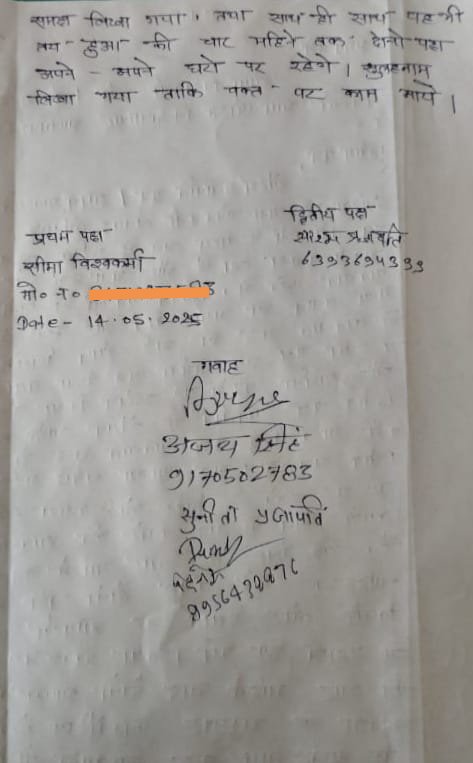 समक्ष लिखा गया। तथा साथ ही साथ यह भी
तय हुआ की चार महिने तक दोनो पक्ष
अपने - अपने घरो पर रहेगे। सुलहनाम
लिखा गया ताकि वक्त पर काम आये।
द्वितीय पक्ष
प्रजापति
6393694399
प्रथम पक्ष
सीमा विश्वकर्मा
मो० न०
Date - 14.05.2025
गवाह
अजय सिंह
9170502783
सुनीता प्रजापति